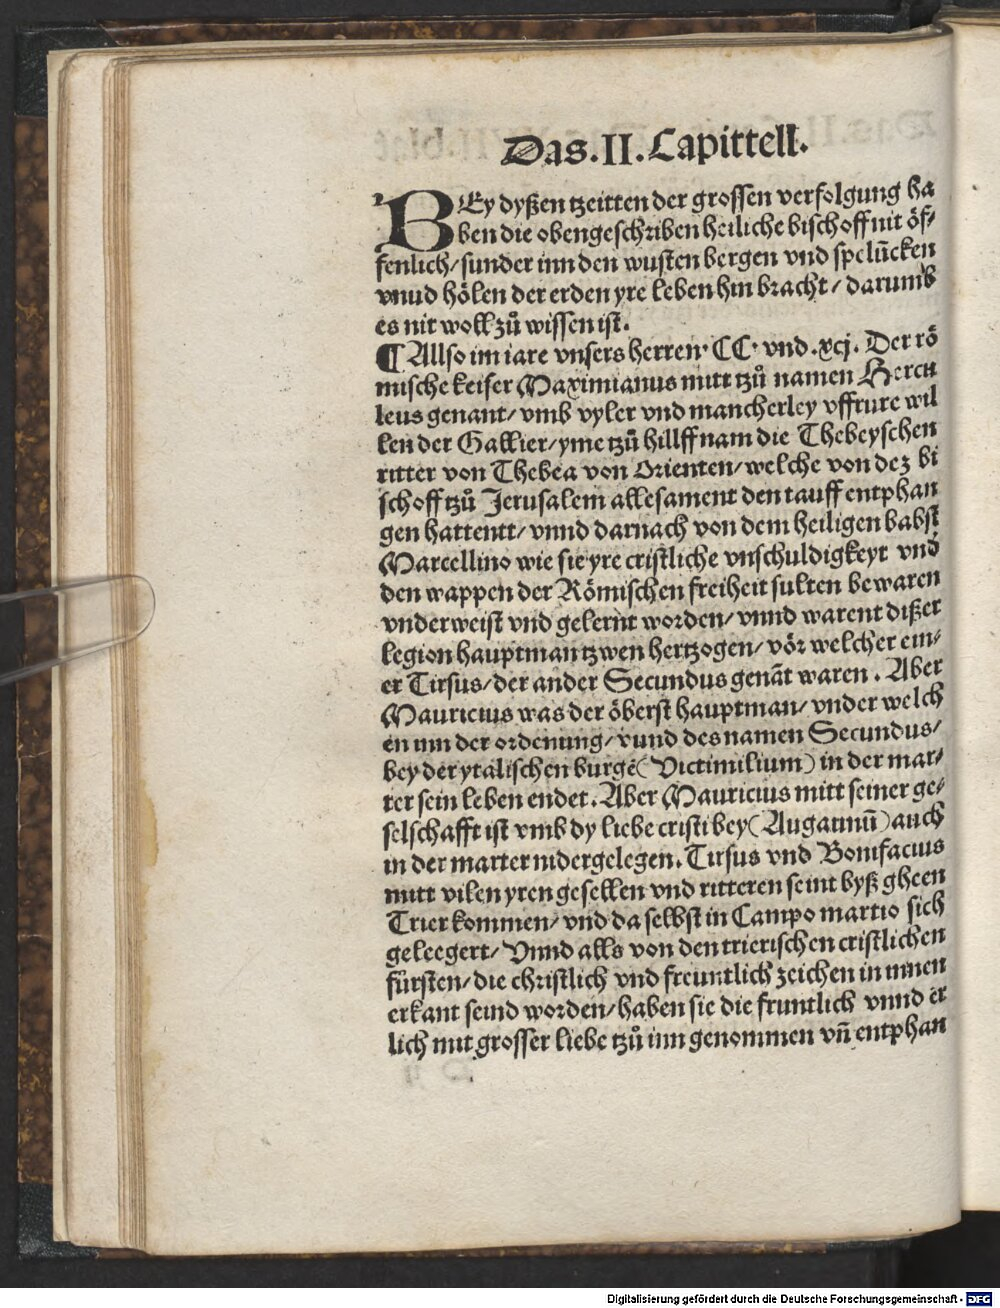 Das.II.Capittell.
BEy dyßen tzeitten der grossen verfolgung ha
ben die obengeschriben heiliche bischoff nit öf⸗
fenlich/ sunder inn den wusten bergen vnd spelūcken
vnnd hölen der erden yre leben hin bracht/ darumb
es nit woll zů wissen ist.
¶ Allso im iare vnsers herren. CC. vnd .xcj. Der rö
mische keiser Maximianus mitt tzů namen Hercu
leus genant/ vmb vyler vnd mancherley vffrure wil
len der Gallier/ yme tzů hillff nam die Thebeyschen
ritter von Thebea von Orienten/ welche von dez bi
schoff tzů Jerusalem allesament den tauff entphan
gen hattentt/ vnnd darnach von dem heiligen babst
Marcellino wie sie yre cristliche vnschuldigkeyt vnd
den wappen der Römischen freiheit sulten bewaren
vnderweist vnd gelernt worden/ vnnd warent dißer
legion hauptman tzwen hertzogen/ vör welcher ein⸗
er Tirsus/ der ander Secundus genāt waren. Aber
Mauricius was der öberst hauptman/ vnder welch
en inn der ordenung/ vnnd des namen Secundus/
bey der ytalischen burgē (Victimilium) in der mar⸗
ter sein leben endet. Aber Mauricius mitt seiner ge⸗
selschafft ist vmb dy liebe cristi bey (Augaunū) auch
in der marter nidergelegen. Tirsus vnd Bonifacius
mitt vilen yren gesellen vnd ritteren seint byß gheen
Trier kommen/ vnd da selbst in Campo martio sich
geleegert/ Vnnd alls von den trierischen cristlichen
fürsten/ die christlich vnd freuntlich zeichen in innen
erkant seind worden/ haben sie die fruntlich vnnd er
lich mit grosser liebe tzů inn genommen vñ entphan
Digitalisierung gefördert durch die Deutsche Forschungsgemeinschaft - DFG